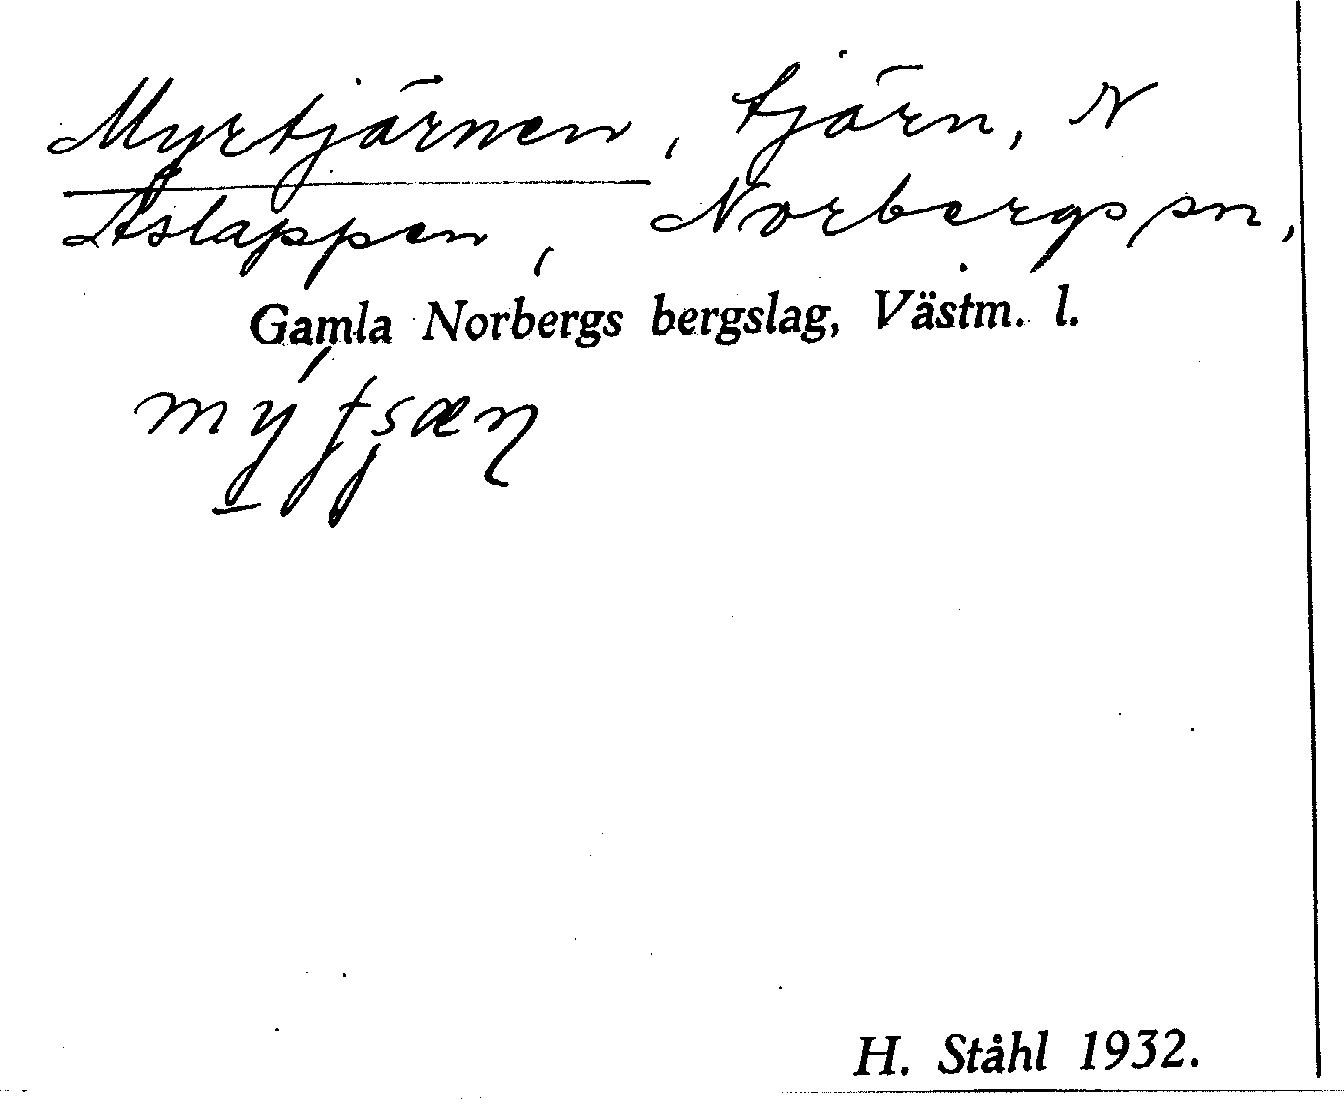 Myrtjärnen, tjärn, N
Åslappen, Norbergs sn,
Gamla Norbergs bergslag, Västm. l.
H. Ståhl 1932.